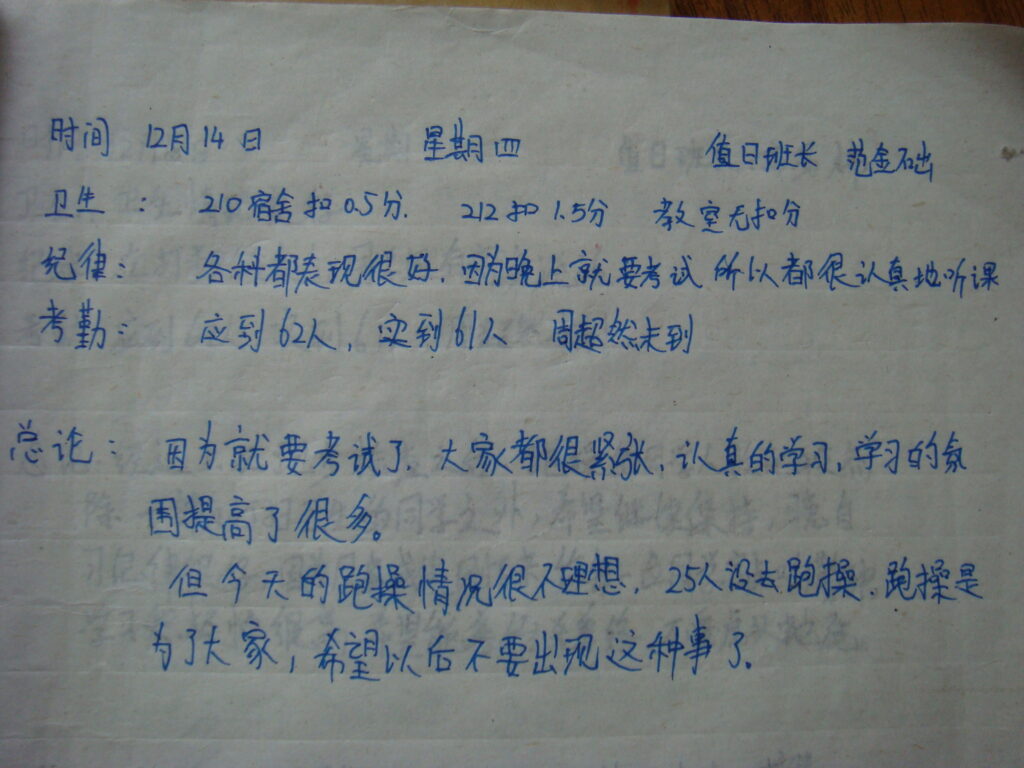 时间 12月14日 星期四 值日班长 范金础
卫生： 210宿舍扣0.5分. 212扣1.5分 教室无扣分
纪律： 各科都表现很好.因为晚上就要考试 所以都很认真地听课
考勤： 应到62人，实到61人 周超然未到
总论： 因为就要考试了.大家都很紧张.认真的学习.学习的氛
围提高了很多。
但今天的跑操情况很不理想.25人没去跑操.跑操是
为了大家，希望以后不要出现这种事了。